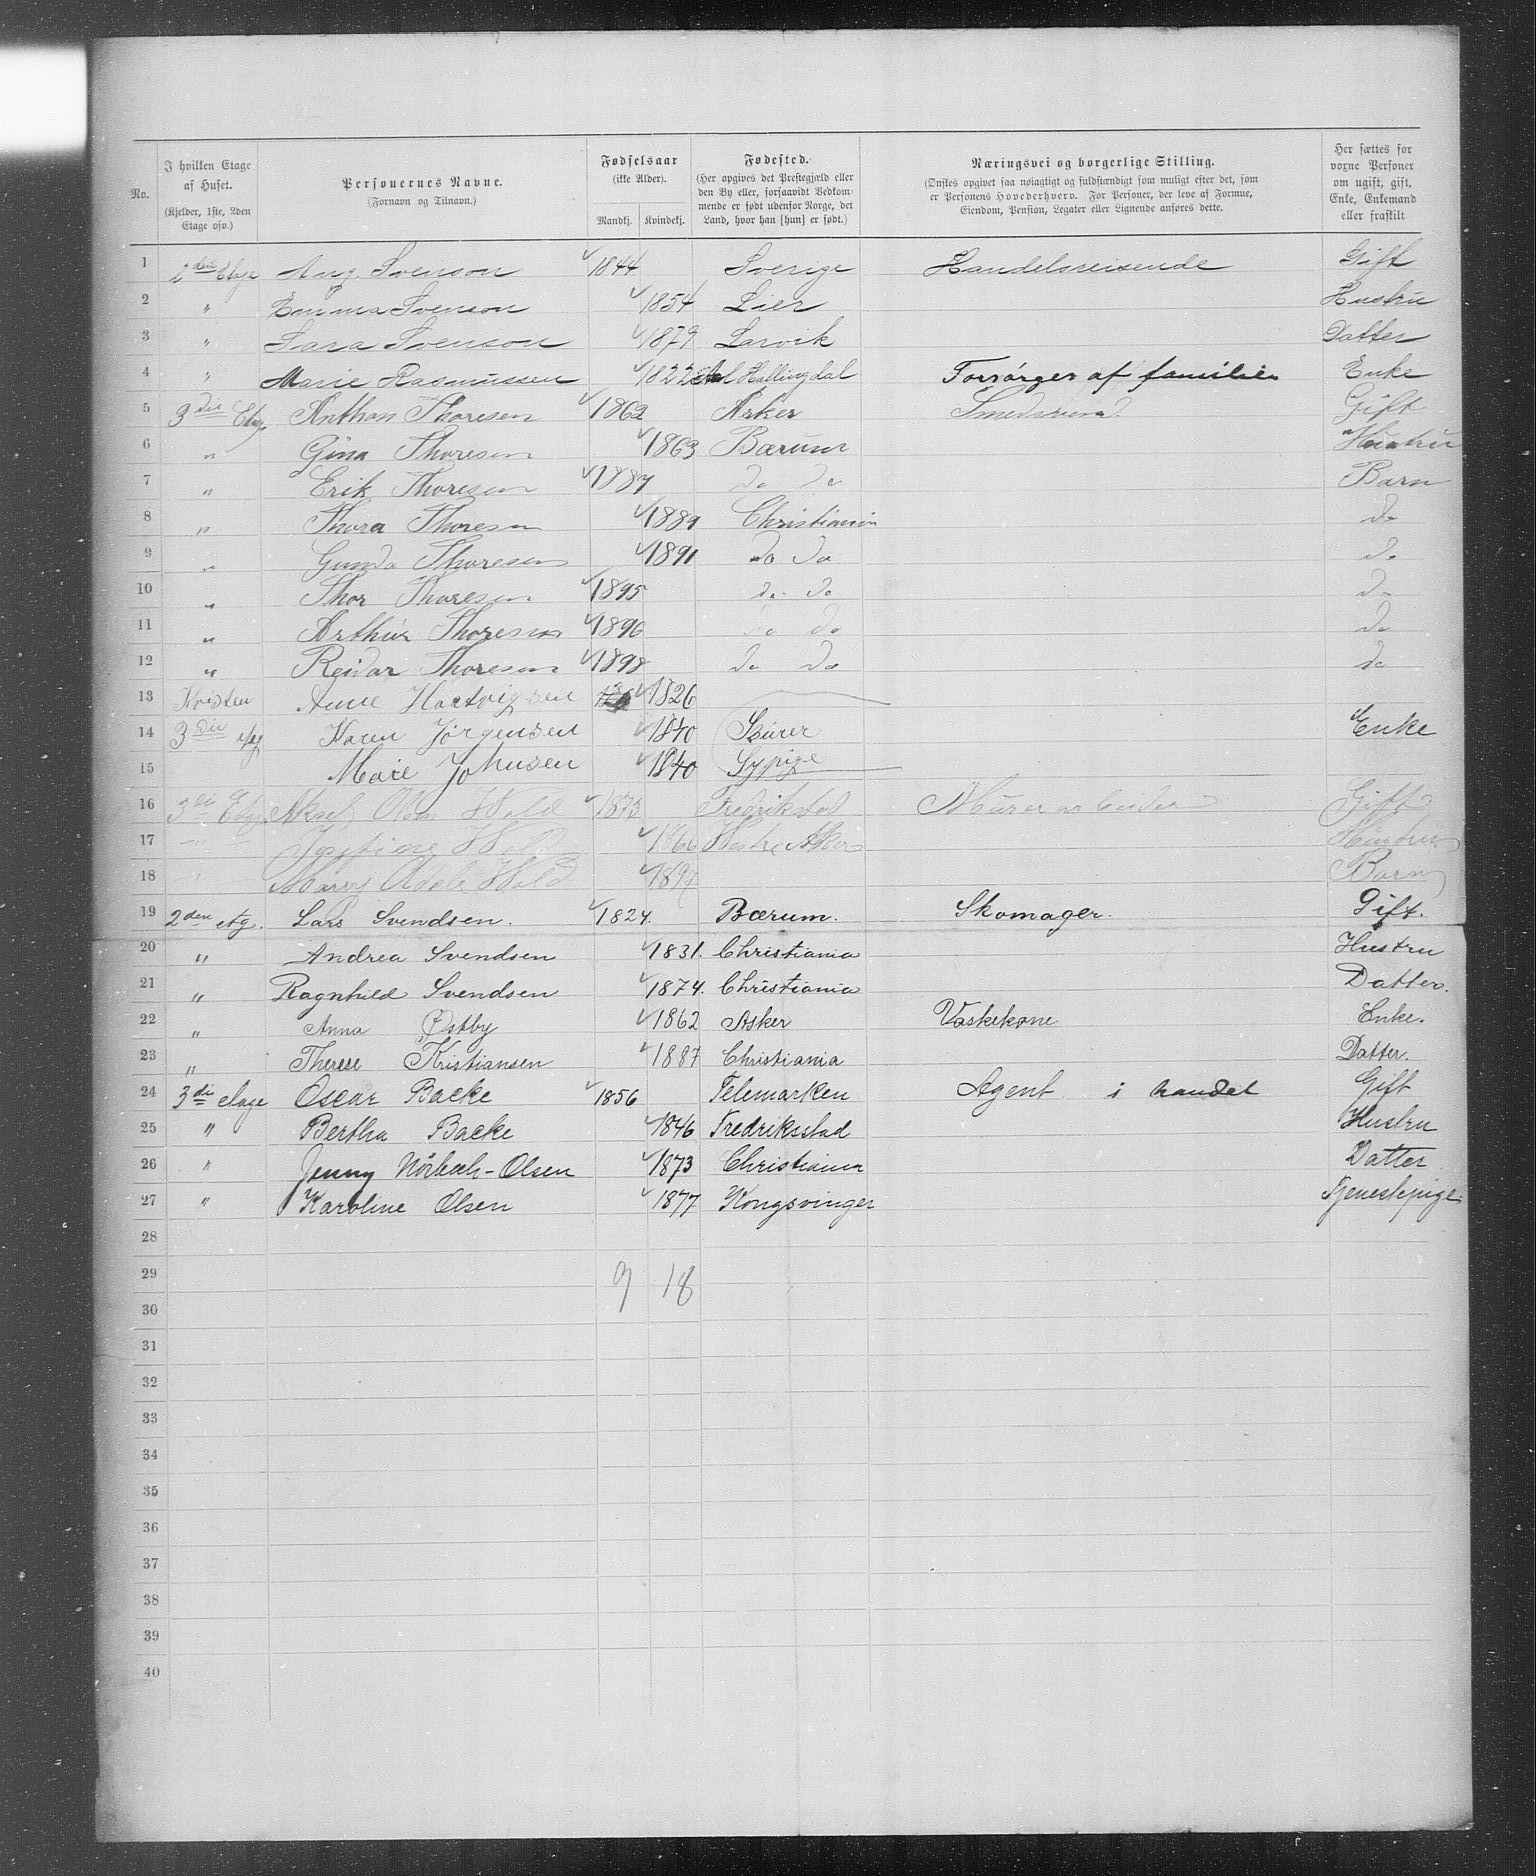 No. | I hvilken Etage af Huset. (Kjelder, 1ste, 2den Etage osv.) | Personernes Navne. (Fornavn og Tilnavn.) | Fødselsaar (ikke Alder). Mandkj. Kvindekj. | Fødested. (Her opgives det Prestegjæld eller den By eller, forsaavidt Vedkommende er født udenfor Norge, det Land, hvor han [hun] er født.) | Næringsvei og borgerlige Stilling. (Ønskes opgivet saa nøiagtigt og fuldstændigt som muligt efter det, som er Personens Hovederhverv. For Personer, der leve af Formue, Eiendom, Pension, Legater eller Lignende anføres dette. | Her sættes for voxne Personer om ugift, gift, Enke, Enkemand eller fraskilt
1 2den Etage Aug. Svenson 1844 Sverige Handelsreisende Gift
2 " Emma Svenson 1854 Lier Hustru
3 " Sara Svenson 1879 Larvik Datter
4 " Marie Rasmussen 1822 Hallingdal Forsørges af familien Enke
5 3die Etag Anthon Thoresen 1862 Asker Smedsvend Gift
6 " Gina Thoresen 1863 Bærum Hustru
7 " Erik Thoresen 1887 do do Barn
8 " Thora Thoresen 1889 Christiania do
9 " Gunda Thoresen 1891 do do do
10 " Thor Thoresen 1895 do do do
11 " Arthur Thoresen 1896 do do do
12 " Reidar Thoresen 1898 do do do
13 Kvisten Anne Hartvigsen 1826
14 3die Karen Jørgensen 1840 Enke
15 Marie Johnsen 1840 Sypige
16 3di Etg Aksel Olsen Wold 1873 Fredrikstad Murerarbeider Gift
17 Josefine Wold Vestre Aker Hustru
18 Mary Adele Wold 1897 Barn
19 2den etg. Lars Svendsen. 1824. Bærum. Skomager. Gift.
20 " Andrea Svendsen 1831. Christiania Hustru
21 " Ragnhild Svendsen 1874. Christiania Datter.
22 " Anna Østby 1862 Asker Vaskekone Enke.
23 " Therese Kristiansen 1887 Christiania Datter.
24 3die etage Oscar Backe 1856 Telemarken Agent i handel Gift
25 " Bertha Backe 1846 Fredriksstad Hustru
26 " Jenny Nörbech-Olsen 1873 Christiania Datter
27 " Karoline Olsen 1877 Kongsvinger Tjenestepige
28
29 9 18
30
31
32
33
34
35
36
37
38
39
40